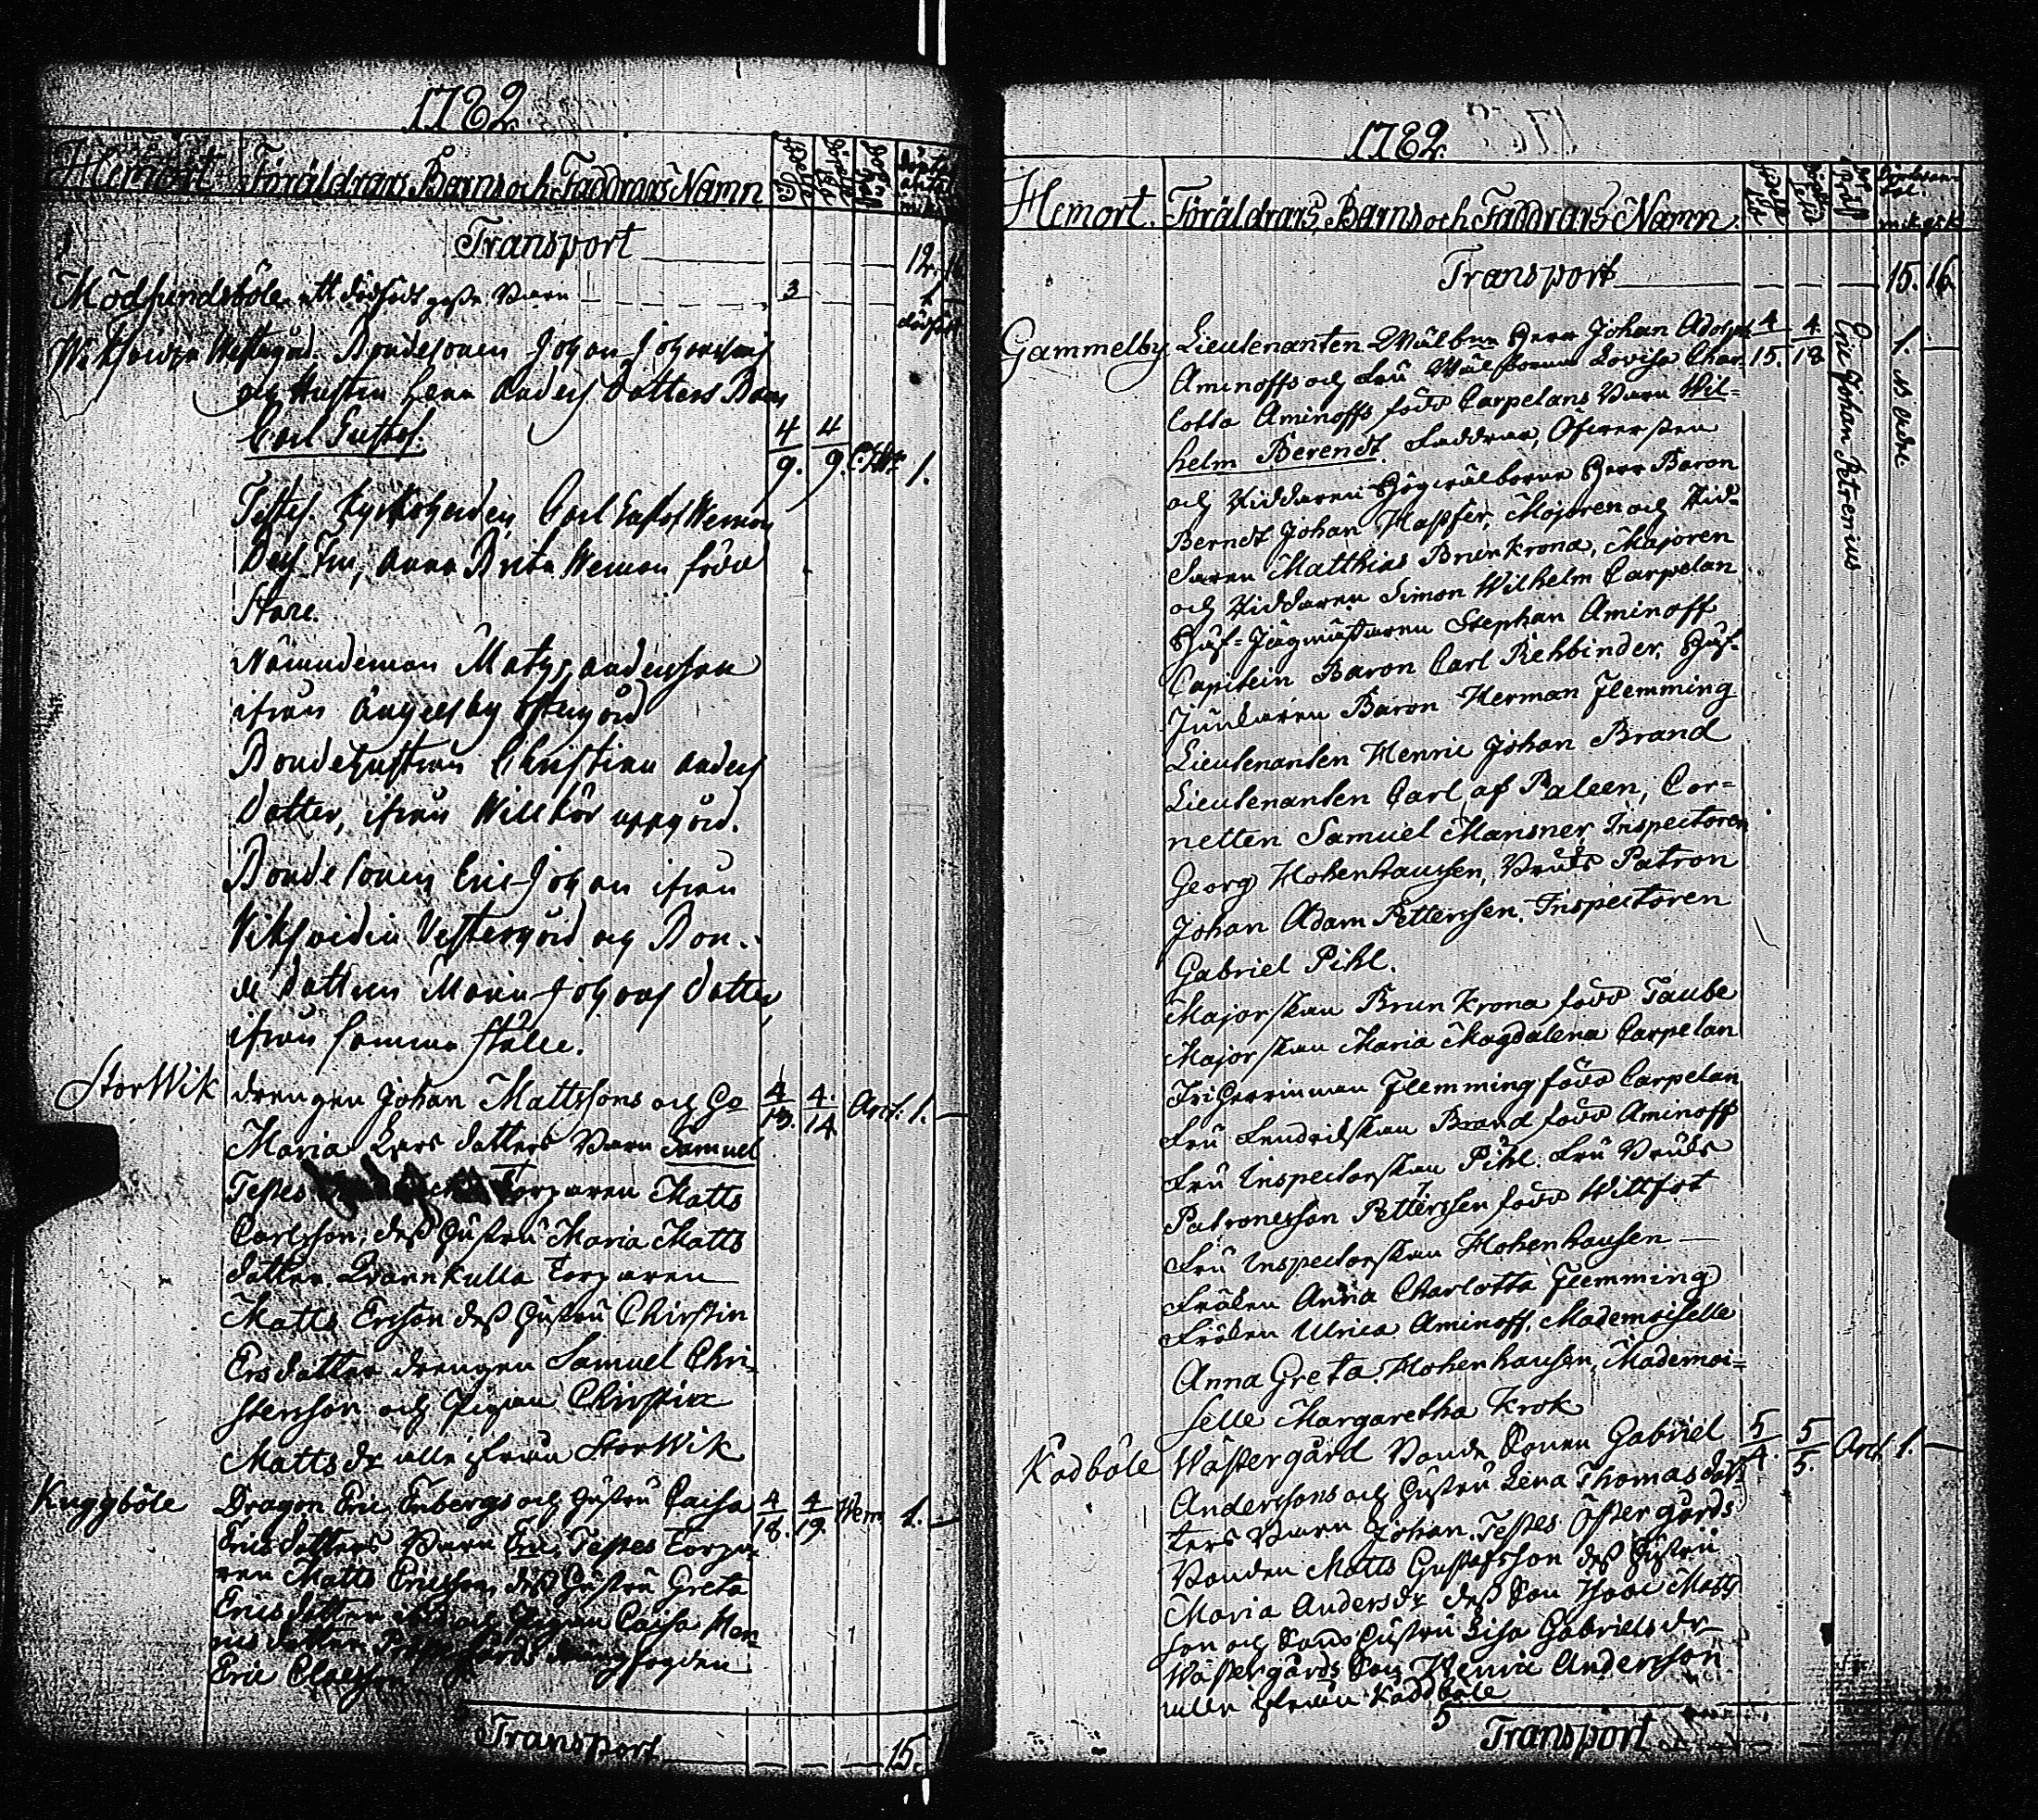 1782
Hemort Föräldrars Barns och Faddrars Namn
Transport 12.
Mödsundsböle ett dödfödt gosse Barn 3
Westergård. Bondesonen Johan Johanssons
och Hustru Lena Anders Dotters Barn
Carl Gustaf. 4/9. 4/9. 1.
Testes. Kyrkoherden Carl Gustaf Weman
Dess Fru, Anna Brita Weman född
Stare.
Nämndeman Matts Andersson
ifrån Ängelsby Östergård
Bondehustrun Christina Anders
Dotter, ifrån Willkär uppgård.
Bondesonen Eric Johan ifrån
Viksvidia Vestergård och Bon-
de dottren Maria Johans Dotter,
ifrån samma ställe.
StorWik drengen Johan Mattssons och 4/13. 4/14 1. —
Maria Lars dotters Barn Samuel
Testes Torparen Matts
Carlsson, dess hustru Maria Matts
dotter. Qvarnkulla Torparen
Matts Ersson dess hustru Chirstin
Ersdotter drengen Samuel Chri-
stersson och Pigan Chirstin
Matts dr alle ifrån StorWik
Kuggböle Dragon Eric Enbergs och hustru Caisa 4/18. 4/19. Wem 1. —
Erics dotters Barn Eric. Testes Torpa-
ren Matts Ericsson, dess hustru Greta
Erics dotter Pigan Caisa Hen-
rics dotter
Eric Claesson
Transport 15.
1782.
Hemort. Föräldrars, Barns och Faddrars Namn
Transport 15. 16.
Gammelby Lieutenanten Wälborne Herr Johan Adolph 4/15. 4/18 Eric Johan Petrenius 1. —
Aminoffs och Fru Wälborna Lovisa Char-
lotta Aminoffs född Carpelans Barn Wil-
helm Berendt. Faddrar, Öfwersten
och Riddaren Högwälborne Herr Baron
Berndt Johan Hastfer, Majoren och Rid-
daren Matthias Brunkrona, Majoren
och Riddaren Simon Wilhelm Carpelan
Hof-Jägmästaren Stephan Aminoff
Capitein Baron Carl Rehbinder, Hof-
Junkaren Baron Herman Flemming
Lieutenanten Henric Johan Brand
Lieutenanten Carl af Paleen, Cor-
netten Samuel Mansner, Inspectoren
Georg Hohenhausen, Bruks Patron
Johan Adam Petterssen. Inspectoren
Gabriel Pihl.
Majorskan Brunkrona född Taube
Majorskan Maria Magdalena Carpelan
Friherrinnan Flemming född Carpelan
Fru Fendrikskan Brand född Aminoff
Fru Inspectorskan Pihl. Fru Bruks
Patronesson Petterssen född Wittfot
Fru Inspectorskan Hohenhausen —
Fröken Anna Charlotta Flemming
Fröken Ulrica Aminoff. Mademoiselle
Anna Greta Hohenhausen, Mademoi-
selle Margaretha Krok
Kadböle Wästergård Bonde Sonen Gabriel 5/4. 5/5. 1. —
Anderssons och hustru Lena Thomas dot-
ters Barn Johan. Testes Östergårds
Bonden Matts Gustafsson dess hustru
Maria Anders dr dess Son Isaac Matts
son och Sons hustru Lisa Gabriels dr
Wästergårds Son Henric Andersson
alle ifrån Kaddböle
5
Transport